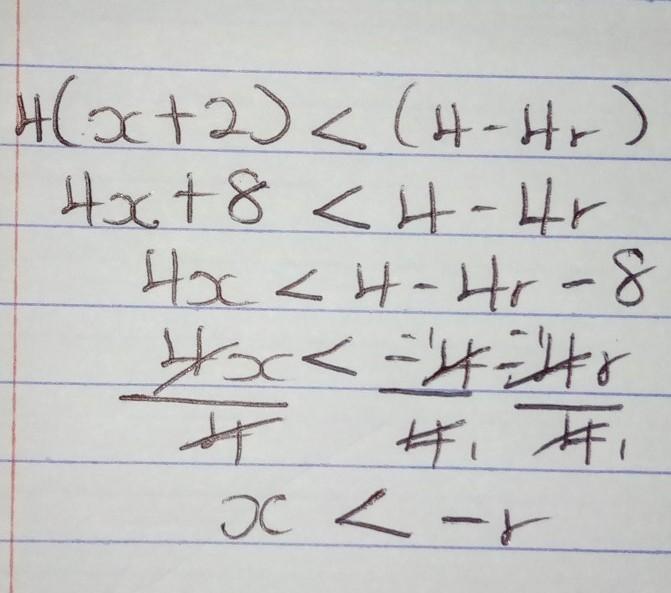 4(x+2) < (4-4r)
4x+8 < 4-4r
4x < 4-4r-8
4x < -4-4r
4 4 4
x < -r